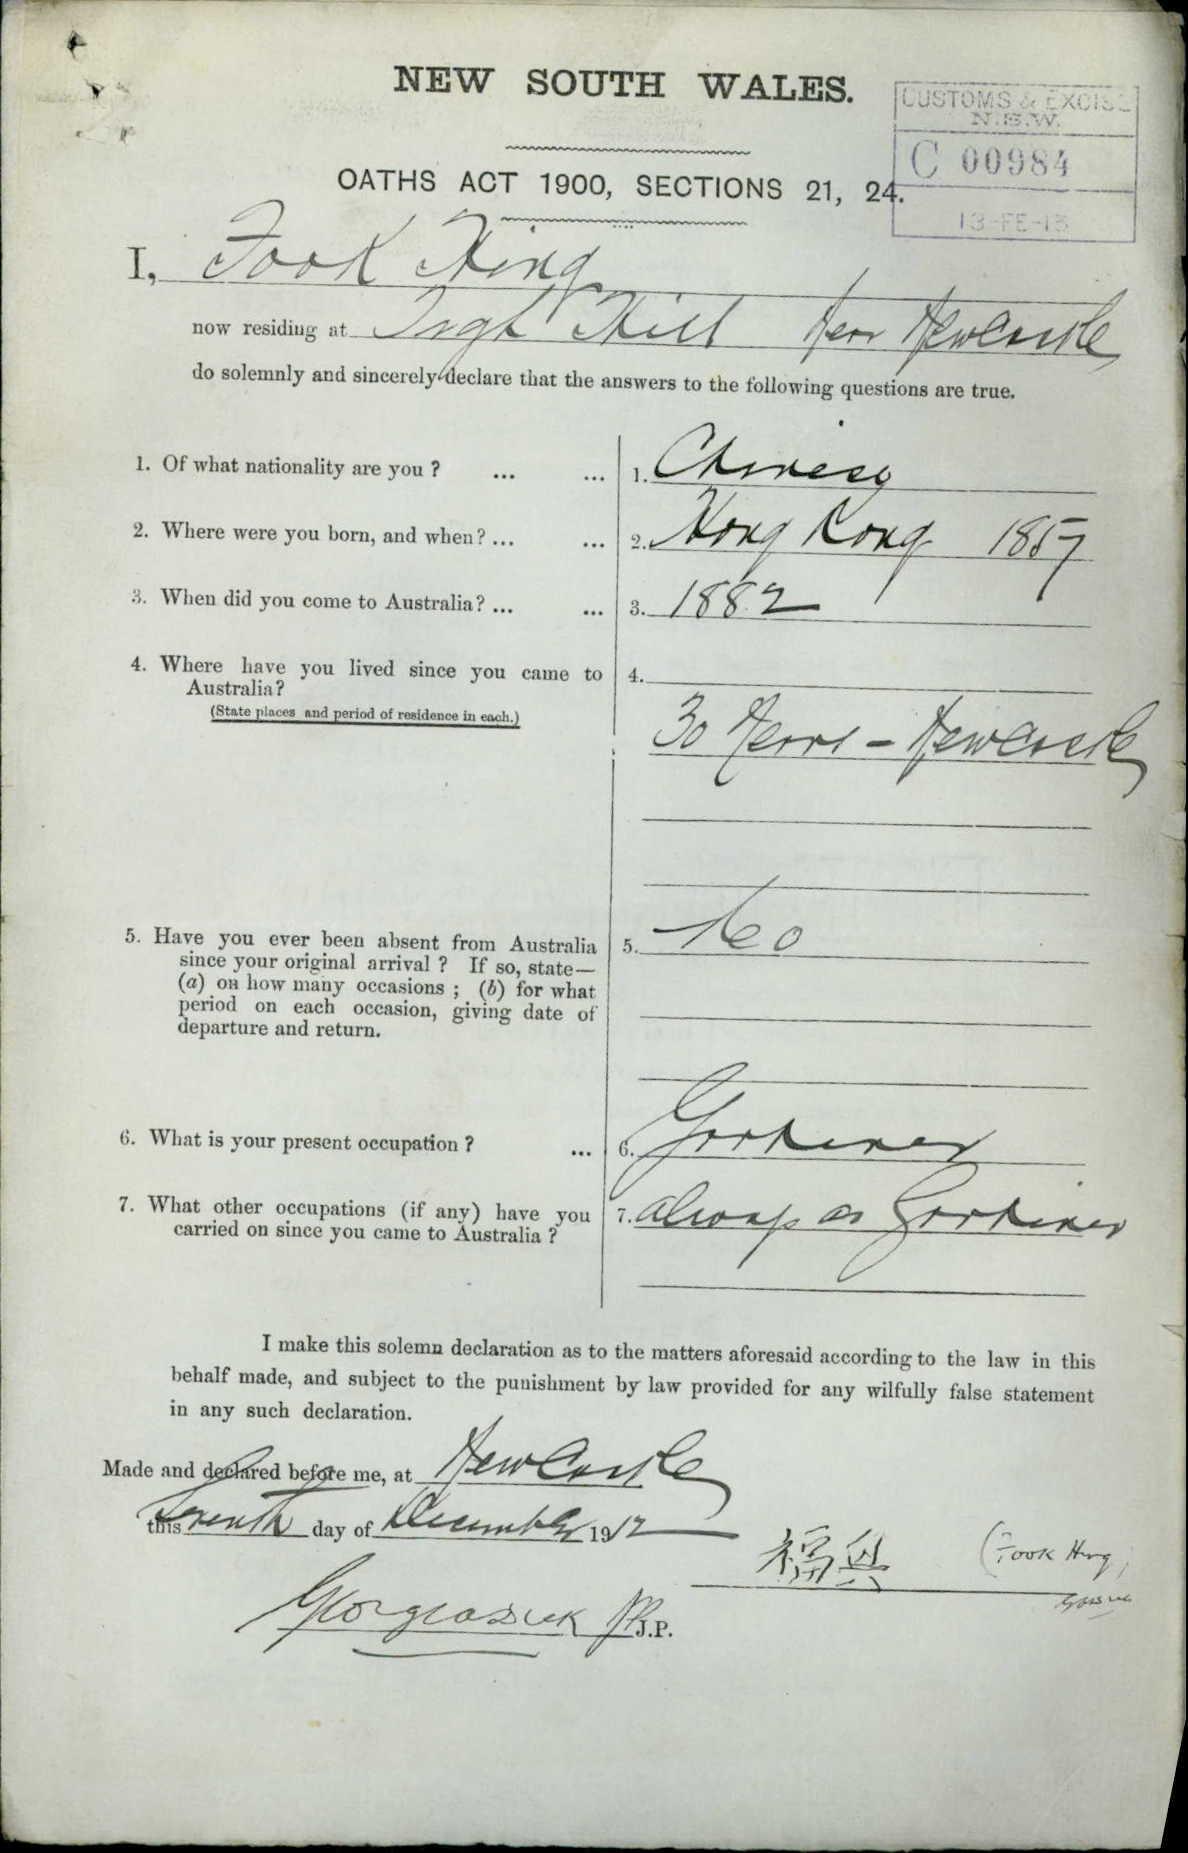 NEW SOUTH WALES.
CUSTOMS & EXCISE
N.S.W.
C 00984
13-FE-13
OATHS ACT 1900, SECTIONS 21, 24.
I, Fook Hing
now residing at Tighe Hill Near Newcastle
do solemnly and sincerely declare that the answers to the following questions are true.
1. Of what nationality are you ? ... ... 1. Chinese
2. Where were you born, and when? ... ... 2. Hong Kong 1857
3. When did you come to Australia? ... ... 3. 1882
4. Where have you lived since you came to 4.
Australia?
(State places and period of residence in each.)
30 Years - Newcastle
5. Have you ever been absent from Australia 5. No
since your original arrival ? If so, state—
(a) on how many occasions ; (b) for what
period on each occasion, giving date of
departure and return.
6. What is your present occupation ? ... 6. Gardener
7. What other occupations (if any) have you 7. always as Gardener
carried on since you came to Australia ?
I make this solemn declaration as to the matters aforesaid according to the law in this
behalf made, and subject to the punishment by law provided for any wilfully false statement
in any such declaration.
Made and declared before me, at Newcastle
this Seventh day of December 1912
福興 (Fook Hing)
J.P.